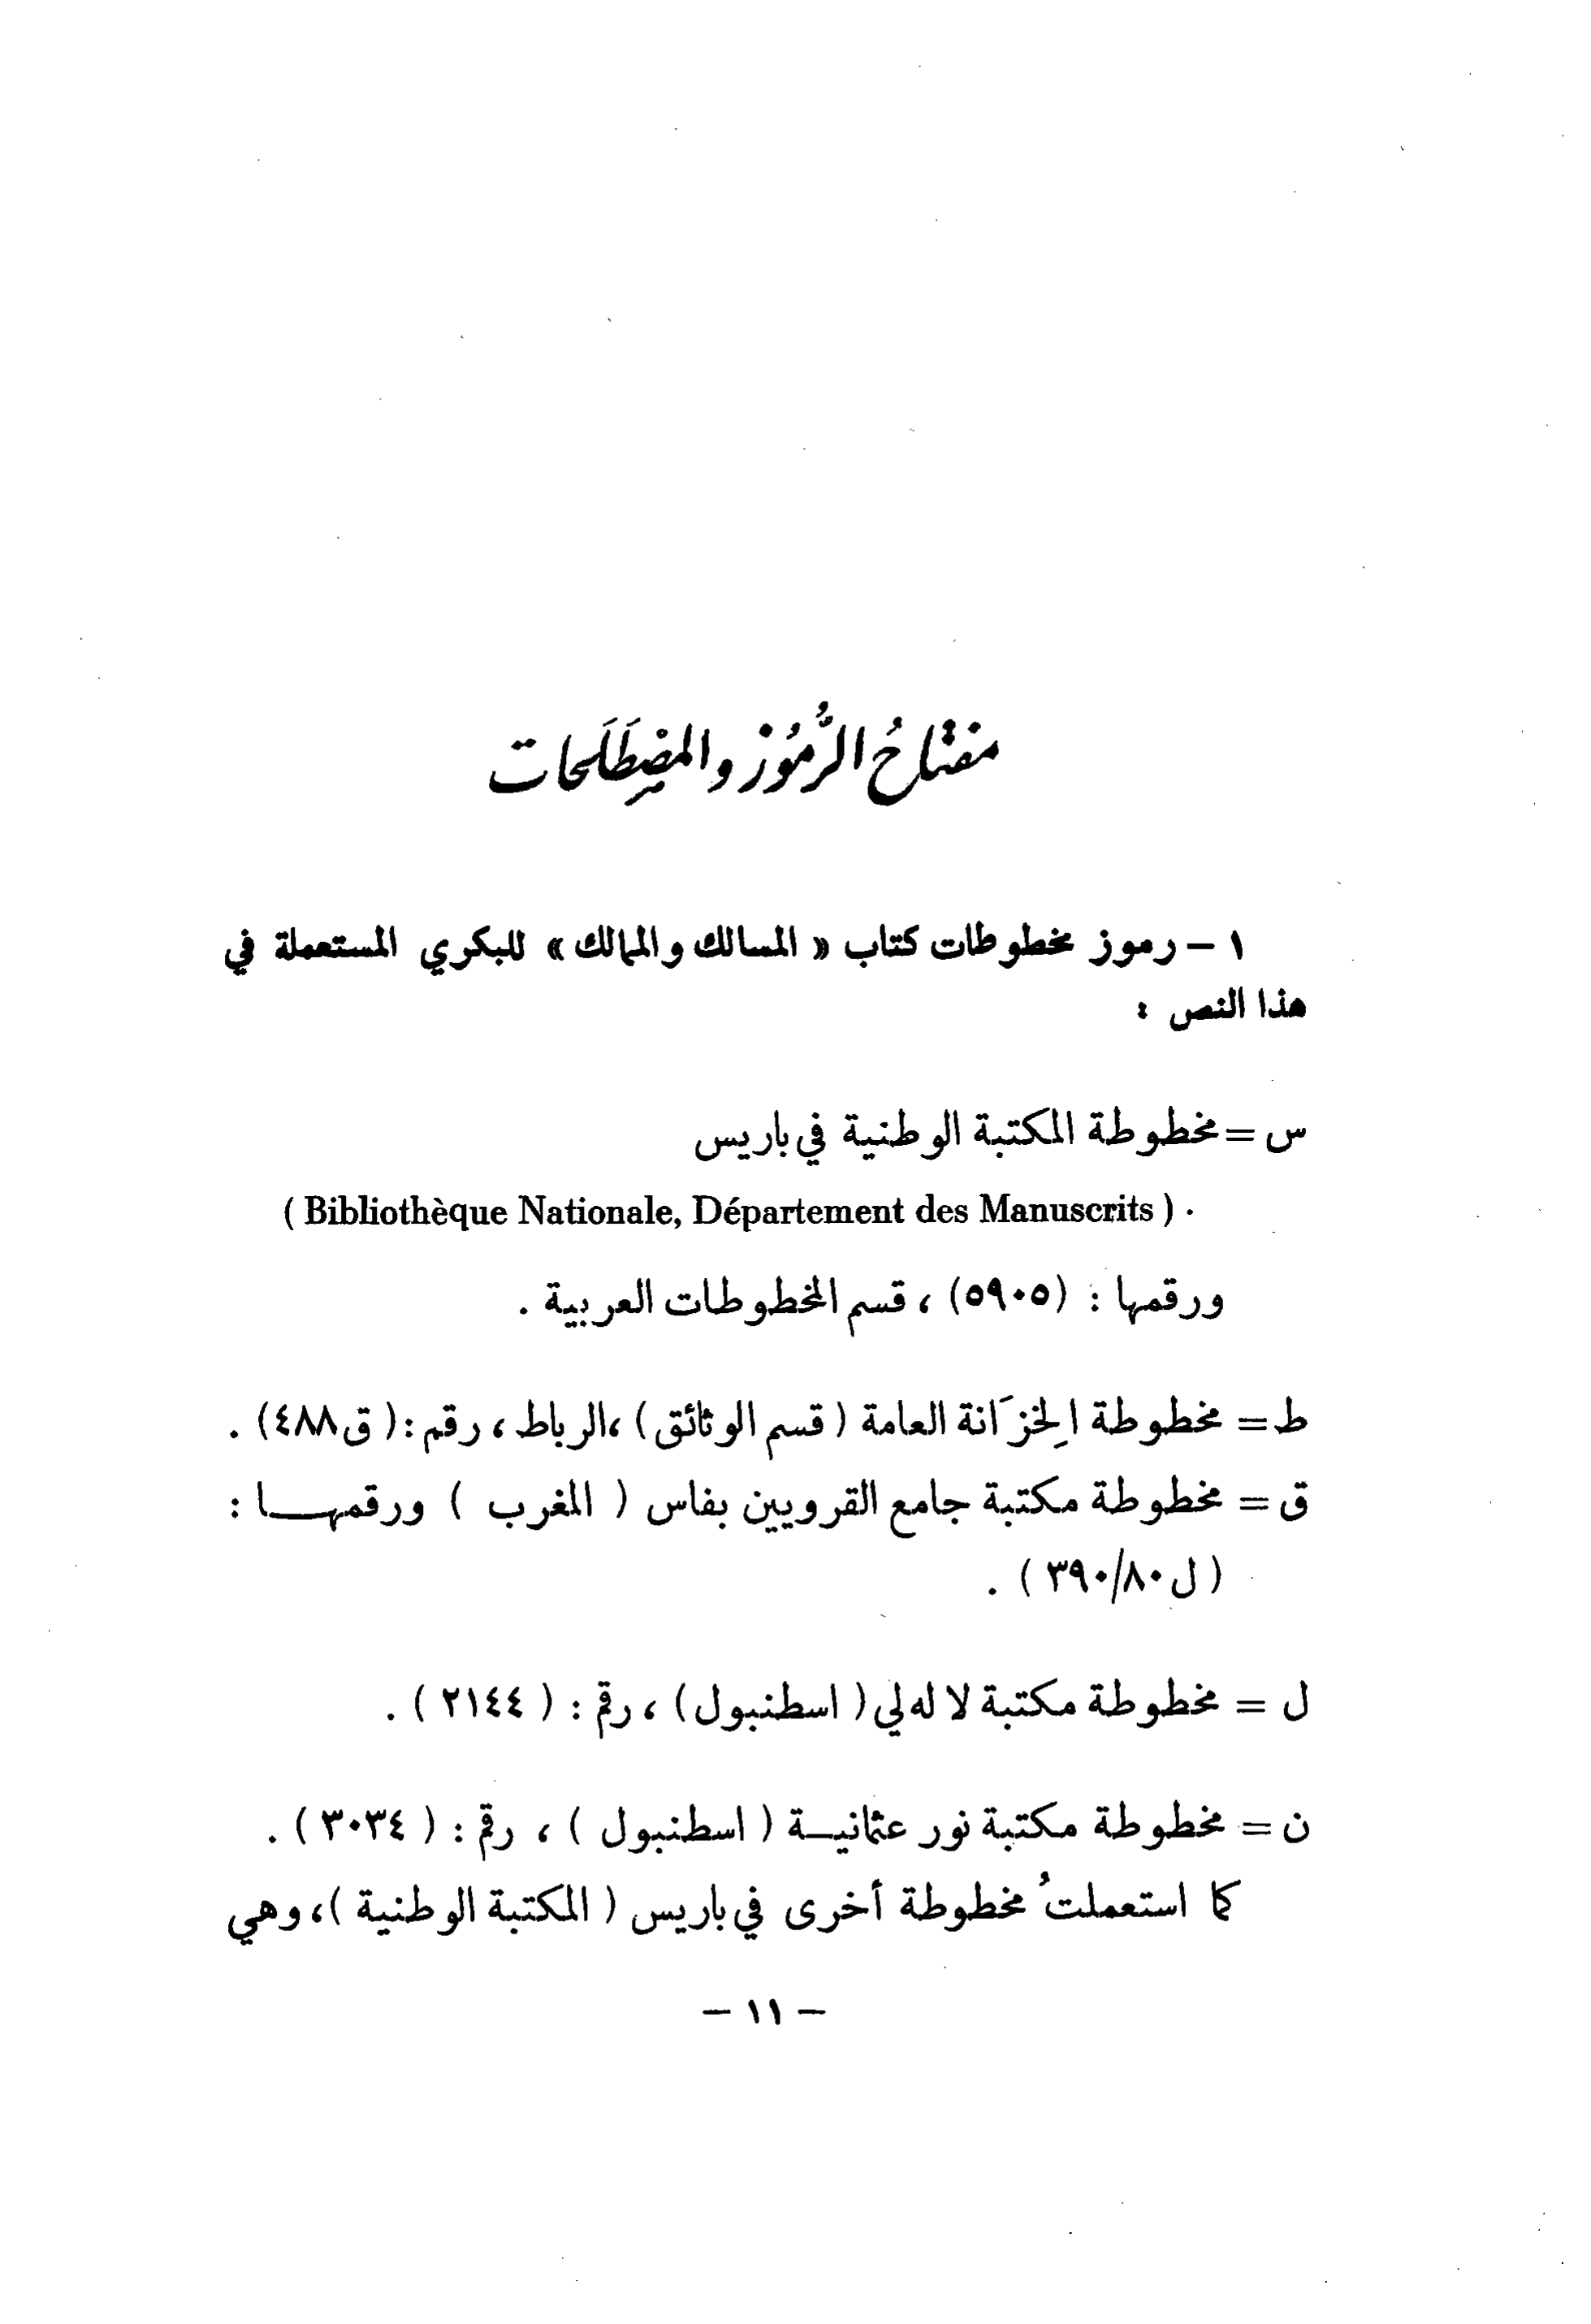 مفتاحُ الرُّمُوز والمصْطَلَحات
١ – رموز مخطوطات كتاب « المسالك والممالك » للبكري المستعملة في
هذا النص :
س = مخطوطة المكتبة الوطنية في باريس
( Bibliothèque Nationale, Département des Manuscrits ) .
ورقمها : (٥٩٠٥) ، قسم المخطوطات العربية .
ط = مخطوطة الخِزَانة العامة ( قسم الوثائق ) ،الرباط ، رقم : ( ق٤٨٨) .
ق = مخطوطة مكتبة جامع القرويين بفاس ( المغرب ) ورقمهـــا :
( ل ٣٩٠/٨٠ ) .
ل = مخطوطة مكتبة لا له لي ( اسطنبول ) ، رقم : ( ٢١٤٤ ) .
ن = مخطوطة مكتبة نور عثمانيـة ( اسطنبول ) ، رقم : ( ٣٠٣٤ ) .
كما استعملتُ مخطوطة أخرى في باريس ( المكتبة الوطنية ) ، وهي
– ١١ –